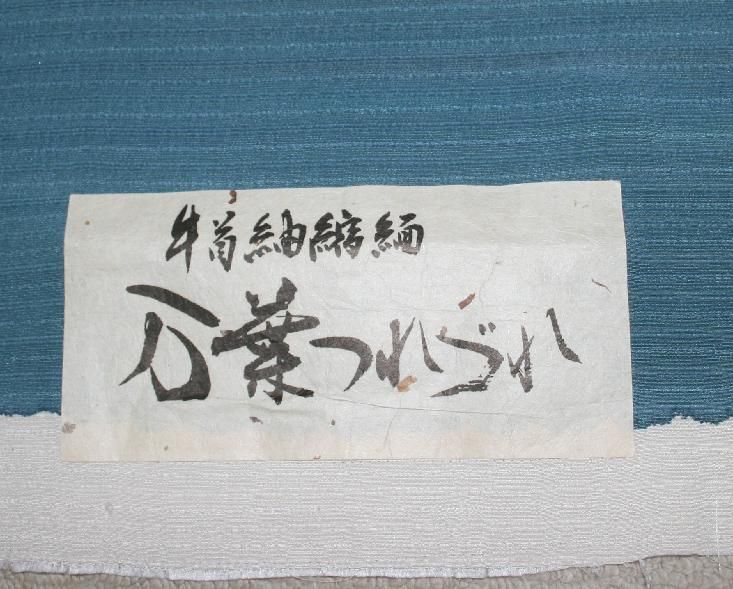 牛首紬縮緬
万葉つれづれ